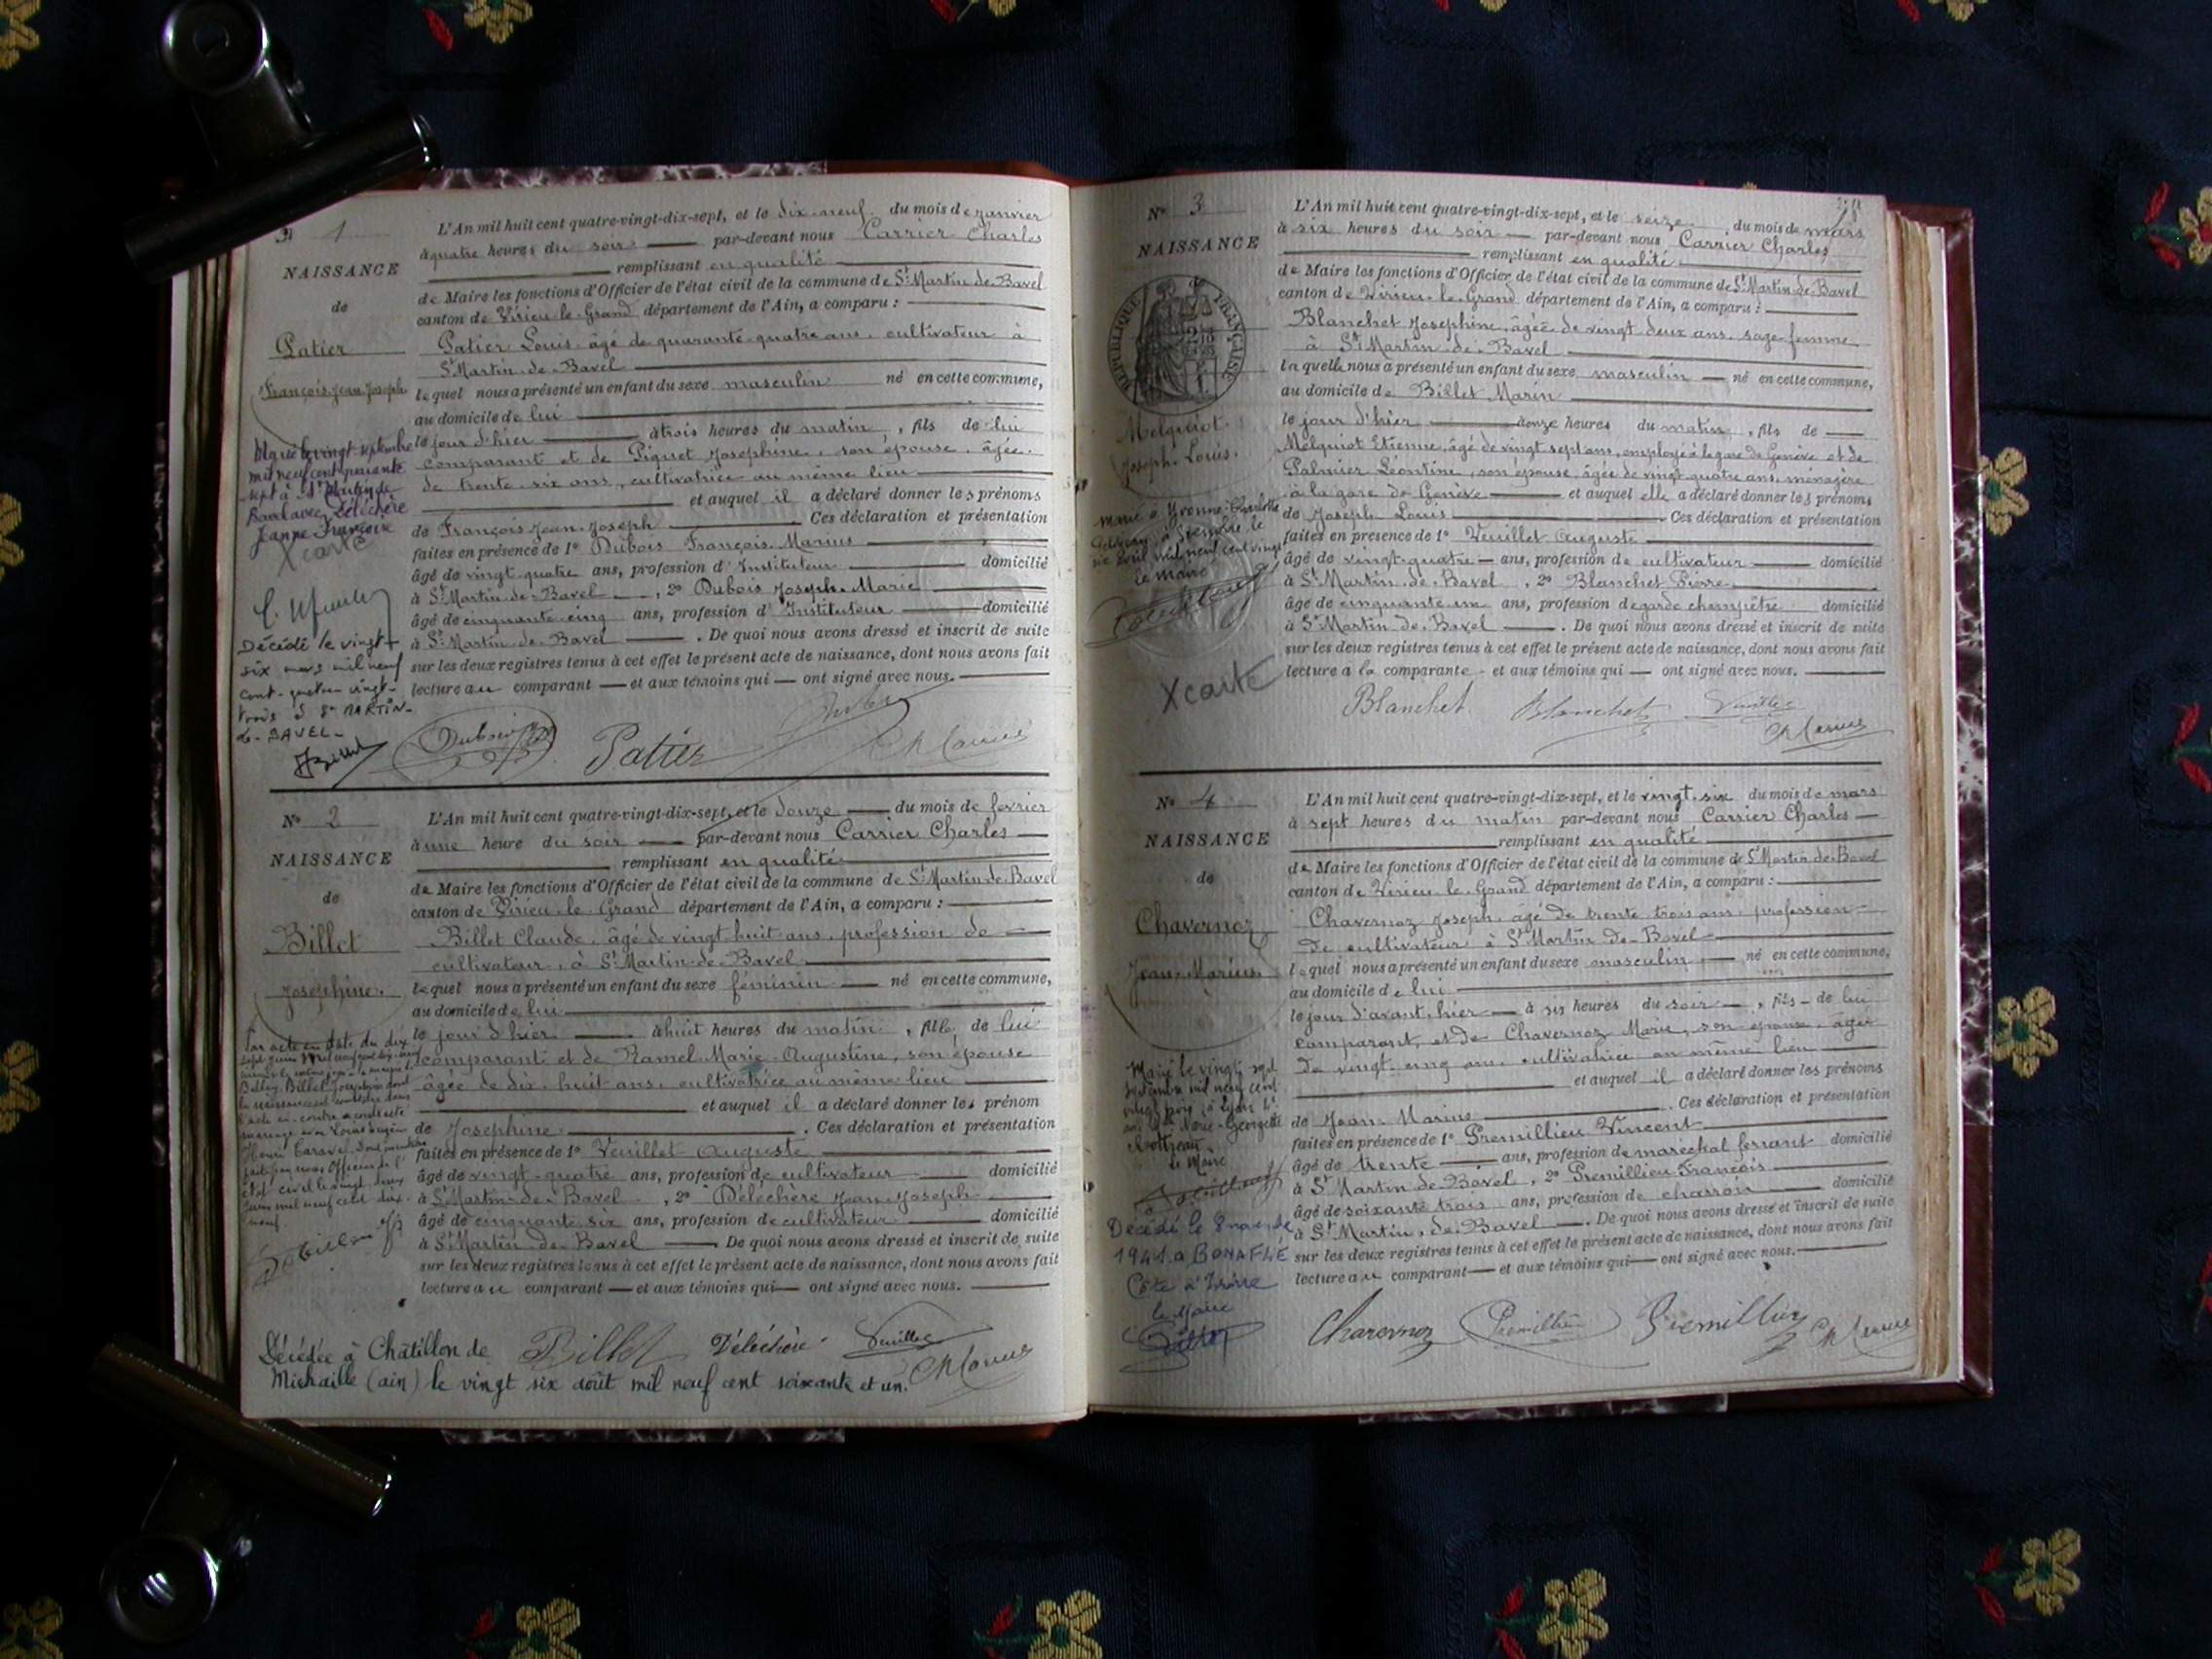 N° 1
NAISSANCE
de
Patier
François Jean Joseph
L'An mil huit cent quatre-vingt-dix-sept, et le dix-neuf du mois de janvier
à quatre heures du soir par-devant nous Carrier Charles
remplissant en qualité
de Maire les fonctions d'Officier de l'état civil de la commune de St Martin de Bavel
canton de Virieu-le-Grand département de l'Ain, a comparu :
Patier Louis âgé de quarante-quatre ans, cultivateur à
St Martin de Bavel
lequel nous a présenté un enfant du sexe masculin né en cette commune,
au domicile de lui
le jour d'hier à trois heures du matin, fils de lui
comparant et de Piquet Joséphine, son épouse, âgée
de trente-six ans, cultivatrice au même lieu
et auquel il a déclaré donner les prénoms
de François Jean Joseph Ces déclaration et présentation
faites en présence de 1° Dubois François Marius
âgé de vingt-quatre ans, profession d'Instituteur domicilié
à St Martin-de-Bavel, 2° Dubois Joseph Marie
âgé de cinquante cinq ans, profession d'Instituteur domicilié
à St Martin de Bavel. De quoi nous avons dressé et inscrit de suite
sur les deux registres tenus à cet effet le présent acte de naissance, dont nous avons fait
lecture au comparant et aux témoins qui ont signé avec nous.
Marié le vingt septembre
mil neuf cent quarante
sept à St Martin de
Bavel avec Délechère
Jeanne Françoise
X carte
Décédé le vingt
six mars mil neuf
cent quatre vingt-
trois à St MARTIN-
de-BAVEL-
Dubois Patier
N° 2
NAISSANCE
de
Billet
Joséphine
L'An mil huit cent quatre-vingt-dix-sept, et le douze du mois de février
à une heure du soir par-devant nous Carrier Charles
remplissant en qualité
de Maire les fonctions d'Officier de l'état civil de la commune de St Martin de Bavel
canton de Virieu-le-Grand département de l'Ain, a comparu :
Billet Claude, âgé de vingt huit ans, profession de
cultivateur, à St Martin-de-Bavel
lequel nous a présenté un enfant du sexe féminin né en cette commune,
au domicile de lui
le jour d'hier à huit heures du matin, fille de lui
comparant et de Ramel Marie Augustine, son épouse
âgée de dix-huit ans, cultivatrice au même lieu
et auquel il a déclaré donner les prénom
de Joséphine. Ces déclaration et présentation
faites en présence de 1° Veuillet Auguste
âgé de vingt-quatre ans, profession de cultivateur domicilié
à St Martin-de-Bavel, 2° Délechère Jean Joseph
âgé de cinquante six ans, profession de cultivateur domicilié
à St Martin de Bavel De quoi nous avons dressé et inscrit de suite
sur les deux registres tenus à cet effet le présent acte de naissance, dont nous avons fait
lecture au comparant et aux témoins qui ont signé avec nous.
Billet Délechère Veuillet
Décédée à Châtillon de
Michaille (ain) le vingt six août mil neuf cent soixante et un.
N° 3
NAISSANCE
RÉPUBLIQUE FRANÇAISE
Melquiot
Joseph Louis.
L'An mil huit cent quatre-vingt-dix-sept, et le seize, du mois de mars
à six heures du soir par-devant nous Carrier Charles
remplissant en qualité
de Maire les fonctions d'Officier de l'état civil de la commune de St Martin-de-Bavel
canton de Virieu-le-Grand département de l'Ain, a comparu :
Blanchet Joséphine, âgée de vingt deux ans, sage-femme
à St Martin de Bavel
laquelle nous a présenté un enfant du sexe masculin né en cette commune,
au domicile de Billet Marin
le jour d'hier à onze heures du matin, fils de
Melquiot Etienne, âgé de vingt sept ans, employé à la gare de Genève et de
Palmier Léontine, son épouse, âgée de vingt quatre ans, ménagère
à la gare de Genève et auquel elle a déclaré donner les prénoms
de Joseph Louis. Ces déclaration et présentation
faites en présence de 1° Veuillet Auguste
âgé de vingt-quatre ans, profession de cultivateur domicilié
à St Martin de Bavel, 2° Blanchet Pierre
âgé de cinquante un ans, profession de garde champêtre domicilié
à St Martin de Bavel. De quoi nous avons dressé et inscrit de suite
sur les deux registres tenus à cet effet le présent acte de naissance, dont nous avons fait
lecture à la comparante et aux témoins qui ont signé avec nous.
Marié à Yvonne Charlotte
le
six avril mil neuf cent vingt
Le maire
X carte
Blanchet Blanchet Veuillet
N° 4
NAISSANCE
de
Chavernoz
Jean Marius
L'An mil huit cent quatre-vingt-dix-sept, et le vingt-six du mois de mars
à sept heures du matin par-devant nous Carrier Charles
remplissant en qualité
de Maire les fonctions d'Officier de l'état civil de la commune de St Martin de Bavel
canton de Virieu-le-Grand département de l'Ain, a comparu :
Chavernoz Joseph, âgé de trente trois ans, profession
de cultivateur à St Martin de Bavel
lequel nous a présenté un enfant du sexe masculin né en cette commune,
au domicile de lui
le jour d'avant-hier à six heures du soir, fils de lui
comparant, et de Chavernoz Marie, son épouse, âgée
de vingt-cinq ans, cultivatrice au même lieu
et auquel il a déclaré donner les prénoms
de Jean Marius. Ces déclaration et présentation
faites en présence de 1° Premillieu Vincent
âgé de trente ans, profession de maréchal ferrant domicilié
à St Martin de Bavel, 2° Premillieu François
âgé de soixante trois ans, profession de charron domicilié
à St Martin de Bavel. De quoi nous avons dressé et inscrit de suite
sur les deux registres tenus à cet effet le présent acte de naissance, dont nous avons fait
lecture au comparant et aux témoins qui ont signé avec nous.
Marié le vingt sept
mil neuf cent
à Lyon
Marie-Georgette
le Maire
Décédé le
1941 a BONAFLÉ
Côte d'Ivoire
le Maire
Chavernoz Premillieu Premillieu